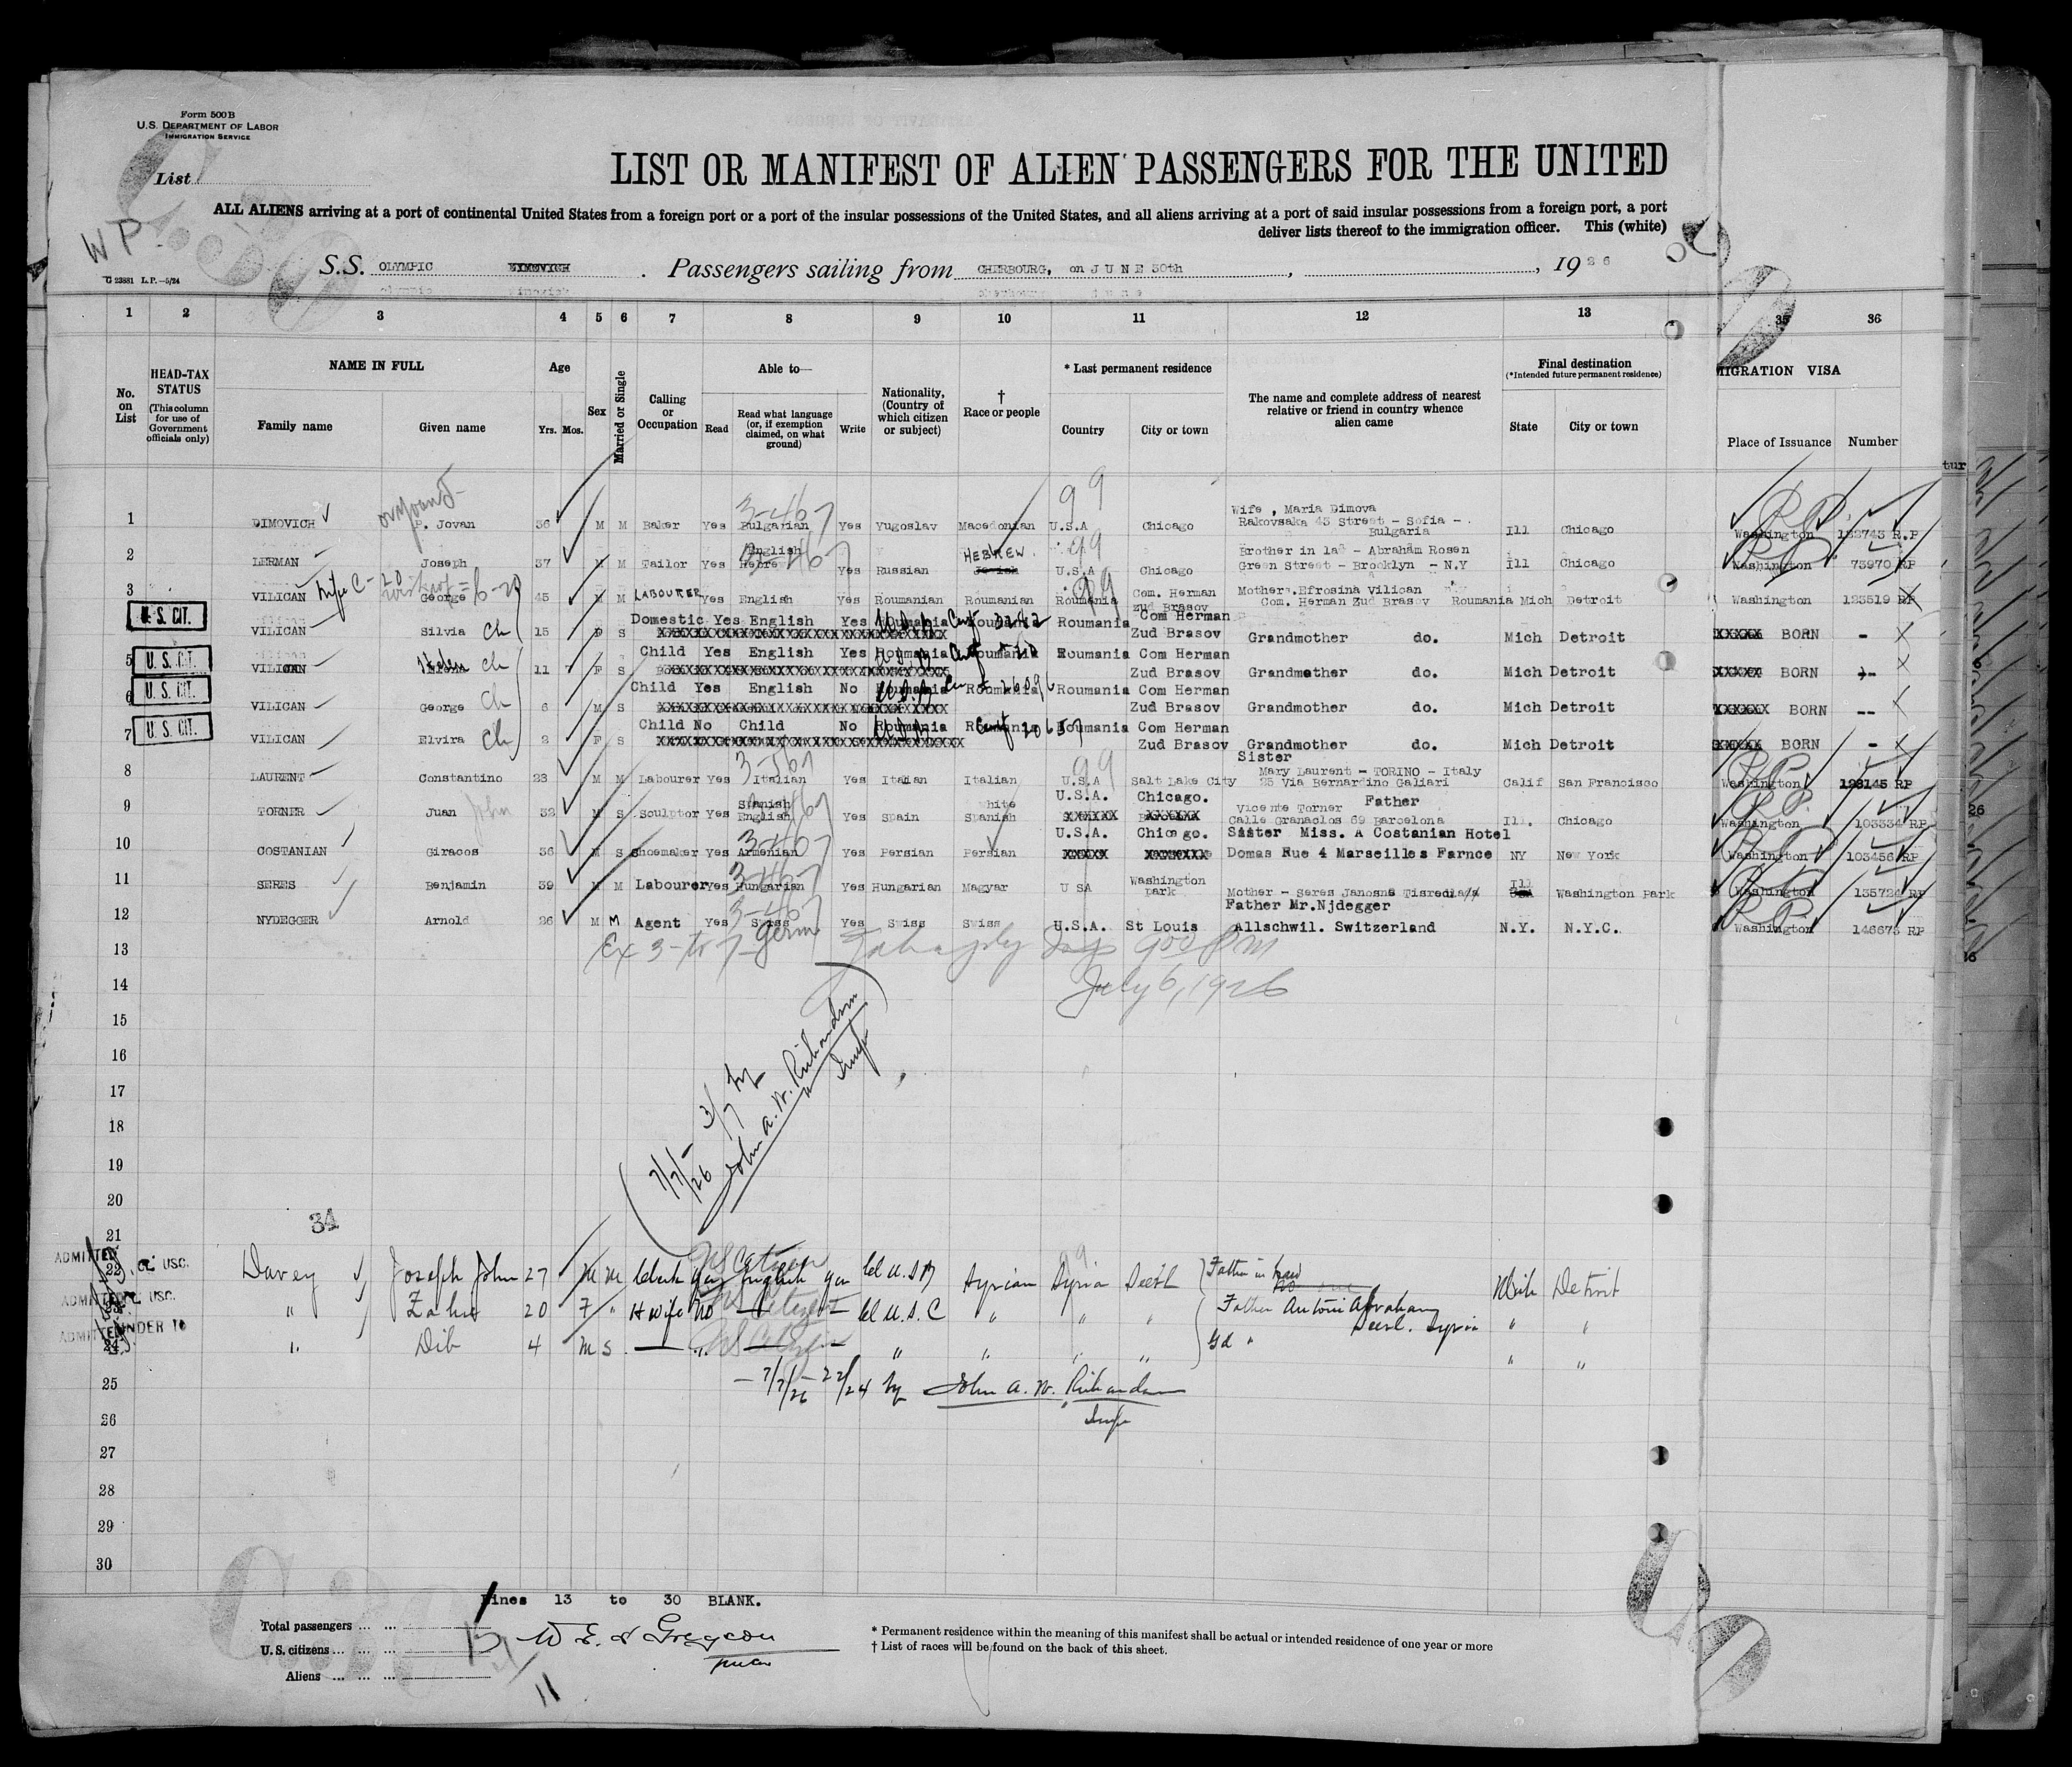 Form 500B
U.S. DEPARTMENT OF LABOR
IMMIGRATION SERVICE
List
LIST OR MANIFEST OF ALIEN PASSENGERS FOR THE UNITED
ALL ALIENS arriving at a port of continental United States from a foreign port or a port of the insular possessions of the United States, and all aliens arriving at a port of said insular possessions from a foreign port, a port
deliver lists thereof to the immigration officer. This (white)
W P
S.S. OLYMPIC . Passengers sailing from CHERBOURG, on JUNE 30th , , 1926
G 23881 L.P.-5/24
1 2 3 4 5 6 7 8 9 10 11 12 13 35 36
No. on List
HEAD-TAX STATUS (This column for use of Government officials only)
NAME IN FULL
Family name Given name
Age
Yrs. Mos.
Sex
Married or Single
Calling or Occupation
Able to—
Read Read what language (or, if exemption claimed, on what ground) Write
Nationality, (Country of which citizen or subject)
† Race or people
* Last permanent residence
Country City or town
The name and complete address of nearest relative or friend in country whence alien came
Final destination (*Intended future permanent residence)
State City or town
MIGRATION VISA
Place of Issuance Number
1 DIMOVICH P. Jovan 36 M M Baker Yes Bulgarian Yes Yugoslav Macedonian U.S.A Chicago Wife , Maria Dimova Rakovsaka 43 Street - Sofia - Bulgaria Ill Chicago Washington 122743 R.P
2 LERMAN Joseph 37 M M Tailor Yes English Hebrew Yes Russian HEBREW U.S.A Chicago Brother in law - Abraham Rosen Green Street - Brooklyn - N.Y Ill Chicago Washington 73970 RP
3 VILICAN George 45 M M LABOURER Yes English Yes Roumanian Roumanian Roumania Com. Herman Zud Brasov Mother. Efrosina Vilican Com. Herman Zud Brasov Roumania Mich Detroit Washington 123519 RP
U.S. CIT. VILICAN Silvia Ch 15 F S Domestic Yes English Yes Roumania Roumania Roumania Com Herman Zud Brasov Grandmother do. Mich Detroit XXXXX BORN -
5 U.S. CIT. VILICAN Helen Ch 11 F S Child Yes English Yes Roumania Roumania Roumania Com Herman Zud Brasov Grandmother do. Mich Detroit XXXXX BORN
6 U.S. CIT. VILICAN George Ch 6 M S Child Yes English No Roumania Roumania Roumania Com Herman Zud Brasov Grandmother do. Mich Detroit XXXXXX BORN --
7 U.S. CIT. VILICAN Elvira Ch 2 F S Child No Child No Roumania Roumania Roumania Com Herman Zud Brasov Grandmother do. Mich Detroit XXXXX BORN -
8 LAURENT Constantino 23 M M Labourer Yes Italian Yes Italian Italian U.S.A Salt Lake City Sister Mary Laurent - TORINO - Italy 25 Via Bernardino Galiari Calif San Francisco Washington 128145 RP
9 TORNER Juan John 32 M S Sculptor Yes Spanish English Yes Spain White Spanish U.S.A. Chicago. Father Vicente Torner Calle Granaclos 69 Barcelona Ill. Chicago Washington 103334 RP
10 COSTANIAN Giracos 36 M S Shoemaker Yes Armenian Yes Persian Persian U.S.A. Chicago. Sister Miss. A Costanian Hotel Domas Rue 4 Marseilles Farnce NY New York Washington 103456 RP
11 SERES Benjamin 39 M M Labourer Yes Hungarian Yes Hungarian Magyar U SA Washington Park Mother - Seres Janosne Ill Washington Park Washington 135724 RP
12 NYDEGGER Arnold 26 M M Agent Yes Swiss Germ Yes Swiss Swiss U.S.A. St Louis Father Mr.Njdegger Allschwil. Switzerland N.Y. N.Y.C. Washington 146673 RP
13
14 July 6, 1926
15
16
17
18
19
20
7/7/26 3/7 by John A. W. Richardson Insp
34
21
22 Davey Joseph John 27 M M Clerk yes English yes Cl U.S. Syrian Syria Father in law Mich Detroit
ADMITTED USC.
23 " Zahia 20 F " H wife No US Citizen Cl U.S.C " " " Father Antoni Abraham Syria " "
ADMITTED UNDER
24 " Dib 4 M S US Citizen " " " " Gd " " "
25 7/7/26 22/24 by John A. W. Richardson
26 Insp
27
28
29
30
Lines 13 to 30 BLANK.
Total passengers ... ...
U.S. citizens ... ... ...
Aliens ... ... ...
11
* Permanent residence within the meaning of this manifest shall be actual or intended residence of one year or more
† List of races will be found on the back of this sheet.